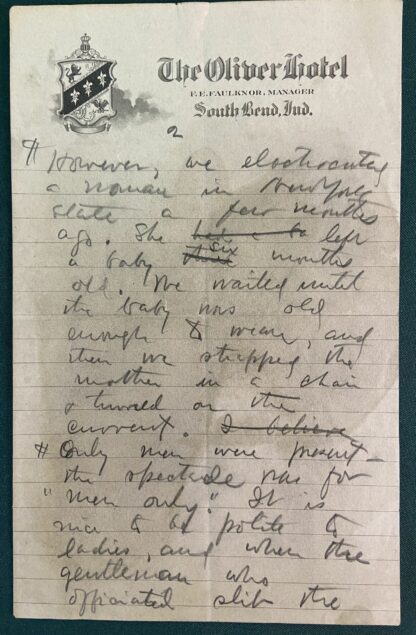 The Oliver Hotel
F. E. FAULKNOR, MANAGER
South Bend, Ind.
2
# However, we electrocuted
a woman in New York
state a few months
ago. She left
a baby six months
old. We waited until
the baby was old
enough to wean, and
then we strapped the
mother in a chair
& turned on the
current. I believe
# Only men were present—
the spectacle was for
"men only." It is
nice to be polite to
ladies, and when the
gentleman who
officiated slit the